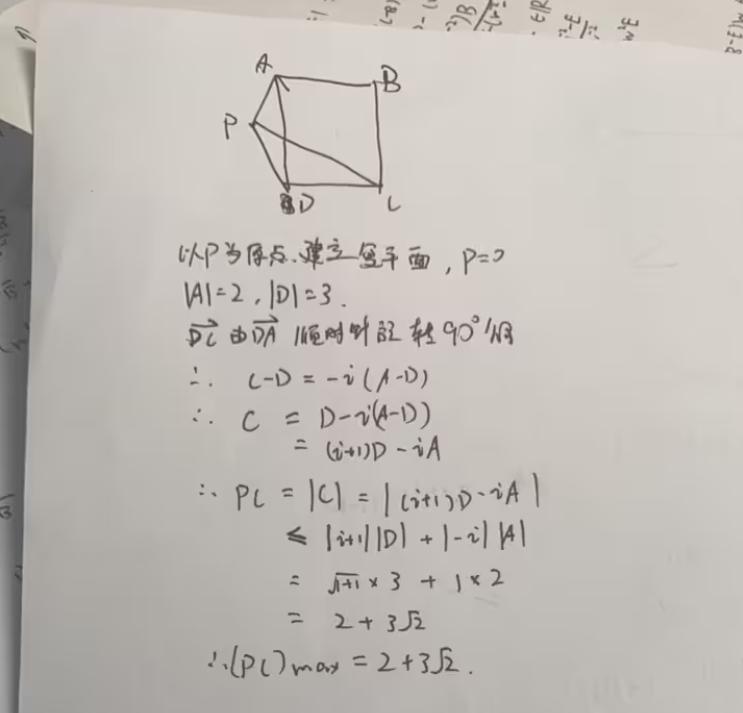 A
B
P
D
C
以P为原点.建立复平面, P=0
|A|=2, |D|=3.
DC→ 由 DA→ 顺时针旋转90°得
∴ C-D = -i(A-D)
∴ C = D-i(A-D))
= (i+1)D-iA
∴ PC = |C| = |(i+1)D-iA|
≤ |i+1||D| + |-i||A|
= √1+1 × 3 + 1×2
= 2+3√2
∴(PC)max = 2+3√2.